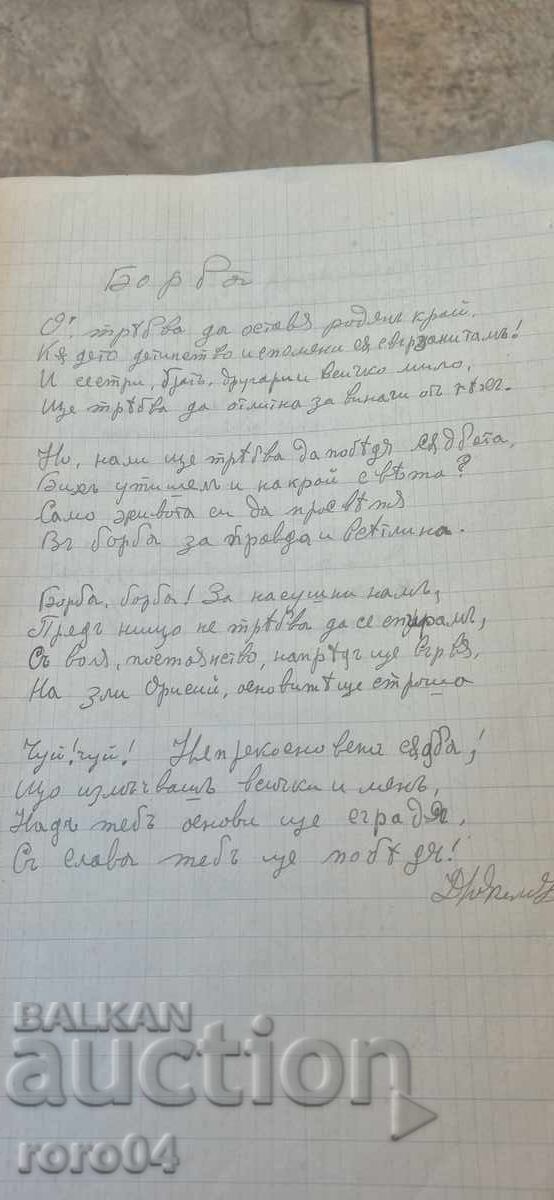 Борба
О! трѣбва да оставя родния край,
Кѫдето детинство и спомени сѫ свързани тамъ!
И сестри, братъ, другари и всичко мило,
Ще трѣбва да отлитна за винаги отъ тѣхъ.
Но, нали ще трѣбва да победя сѫдбата,
Бихъ утишелъ и на край свѣта?
Само живота си да просвѣтя
Въ борба за правда и светлина.
Борба, борба! За насѫщни намъ,
Предъ нищо не трѣбва да се спирамъ,
Съ воля, постоянство, напрѣдъ ще вървя,
На зли орисий, основитѣ ще строша
Чуй! чуй! Неприкосновена сѫдба,!
Що измѫчвашъ всички и менъ,
Надъ тебъ основи ще сградя,
Съ слава тебъ ще побѣдя!
BALKAN
auction
roro04